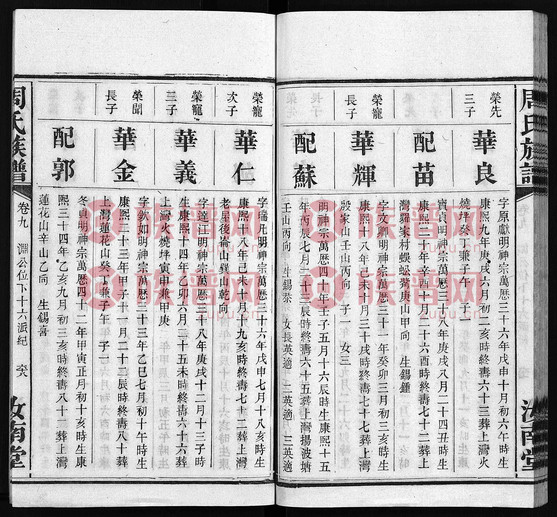 周氏族譜
汝南堂
榮先
三子
華良
字原獻明神宗萬曆三十六年戊申十月十八亥時生
康熙九年庚戌六月初二亥時終壽六十三葬上灣火
燒坪癸丁兼子午 子一
配苗
寶貞明神宗萬曆三十八年庚戌二月二十四丑時生
康熙二十年辛酉十月二十六酉時終壽七十二葬上
灣羅家村蜈蚣形庚山甲向 生錫鍾
榮寵
長子
華輝
字文卿明神宗萬曆三十一年癸卯三月初三亥時生
康熙十八年己未十月三十戌時終壽七十七葬上灣
殷家山壬山丙向 子一 女三
配蘇
明神宗萬曆四十年壬子五月十六辰時生康熙十五
年丙辰七月二十三辰時終壽六十五葬上灣楊波塘
壬山丙向 生錫榮 女長英適 二英適 三英適
榮寵
次子
華仁
字瑞凡明神宗萬曆三十六年戊申十月十八亥時生
康熙十八年己未十月十九亥時終壽七十二葬上灣
老屋後崙山巽乾向
榮寵
三子
華義
字達江明神宗萬曆三十八年庚戌十二月十三子時
生康熙十四年乙卯六月二十五未時終壽六十六葬
上灣火燒坪寅申兼甲庚
榮聞
長子
華金
字欽如明神宗萬曆三十三年乙巳七月初十午時生
康熙二十三年甲子十一月二十二辰時終壽八十葬
上灣蓮花山癸丁兼子午 子一
配郭
冬貞明神宗萬曆四十二年甲寅正月初三亥時生康
熙三十四年乙亥九月初三亥時終壽八十二葬上灣
蓮花山辛山乙向 生錫喜
周氏族譜
卷九
淵公位下十六派紀
汝南堂